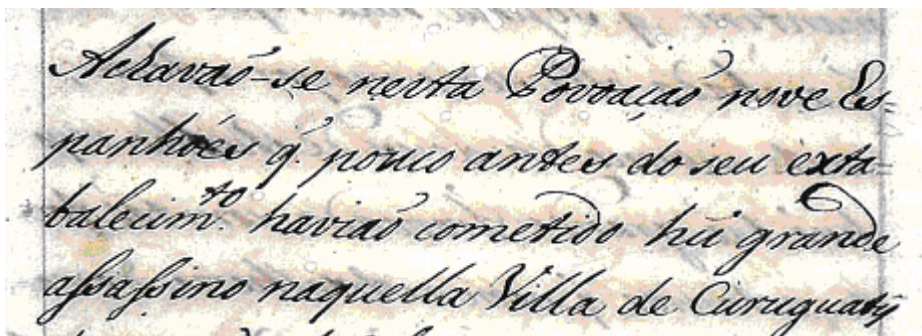 Achavaõ-se nesta Povoaçaõ nove Es=
panhóes q. pouco antes do seu exta=
balecim.to haviaõ cometido hũ grande
assassino naquella Villa de Curuguatÿ